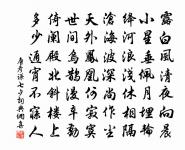 露白風清夜向晨
小星垂佩月埋輪
絳河浪淺休相隔
滄海波深尚作塵
天外鳳凰何寂寞
世間烏鵲漫辛勤
倚闌殿北斜樓上
多少通宵不寐人
唐彥謙七夕詞典網書